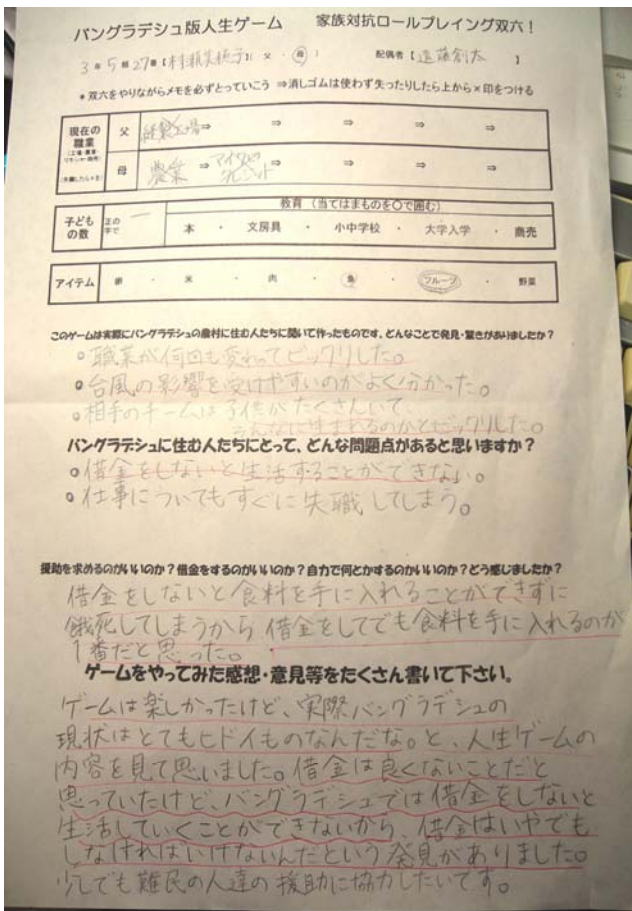 バングラデシュ版人生ゲーム　家族対抗ロールプレイング双六！
3年5組27番【村瀬実穂子】（ 父 ・ 母 ）　配偶者【遠藤創太　】
＊双六をやりながらメモを必ずとっていこう ⇒消しゴムは使わず失ったりしたら上から×印をつける
現在の職業
父 縫製工場⇒ ⇒ ⇒ ⇒ ⇒
母 農業 ⇒ マイクロクレジット ⇒ ⇒ ⇒ ⇒
子どもの数 正の字で 一
教育 （当てはまものを〇で囲む）
本 ・ 文房具 ・ 小中学校 ・ 大学入学 ・ 商売
アイテム 卵 ・ 米 ・ 肉 ・ 魚 ・ フルーツ ・ 野菜
このゲームは実際にバングラデシュの農村に住む人たちに聞いて作ったものです。どんなことで発見・驚きがありましたか？
○職業が何回も変わってビックリした。
○台風の影響を受けやすいのがよく分かった。
○相手のチームは子供がたくさんいて、
そんなに生まれるのかとビックリした。
バングラデシュに住む人たちにとって、どんな問題点があると思いますか？
○借金をしないと生活することができない。
○仕事についてもすぐに失職してしまう。
援助を求めるのがいいのか？借金をするのがいいのか？自力で何とかするのがいいのか？どう感じましたか？
借金をしないと食料を手に入れることができずに
餓死してしまうから借金をしてでも食料を手に入れるのが
1番だと思った。
ゲームをやってみた感想・意見等をたくさん書いて下さい。
ゲームは楽しかったけど、実際バングラデシュの
現状はとてもヒドイものなんだな。と、人生ゲームの
内容を見て思いました。借金は良くないことだと
思っていたけど、バングラデシュでは借金をしないと
生活していくことができないから、借金はいやでも
しなければいけないんだという発見がありました。
少しでも難民の人達の援助に協力したいです。